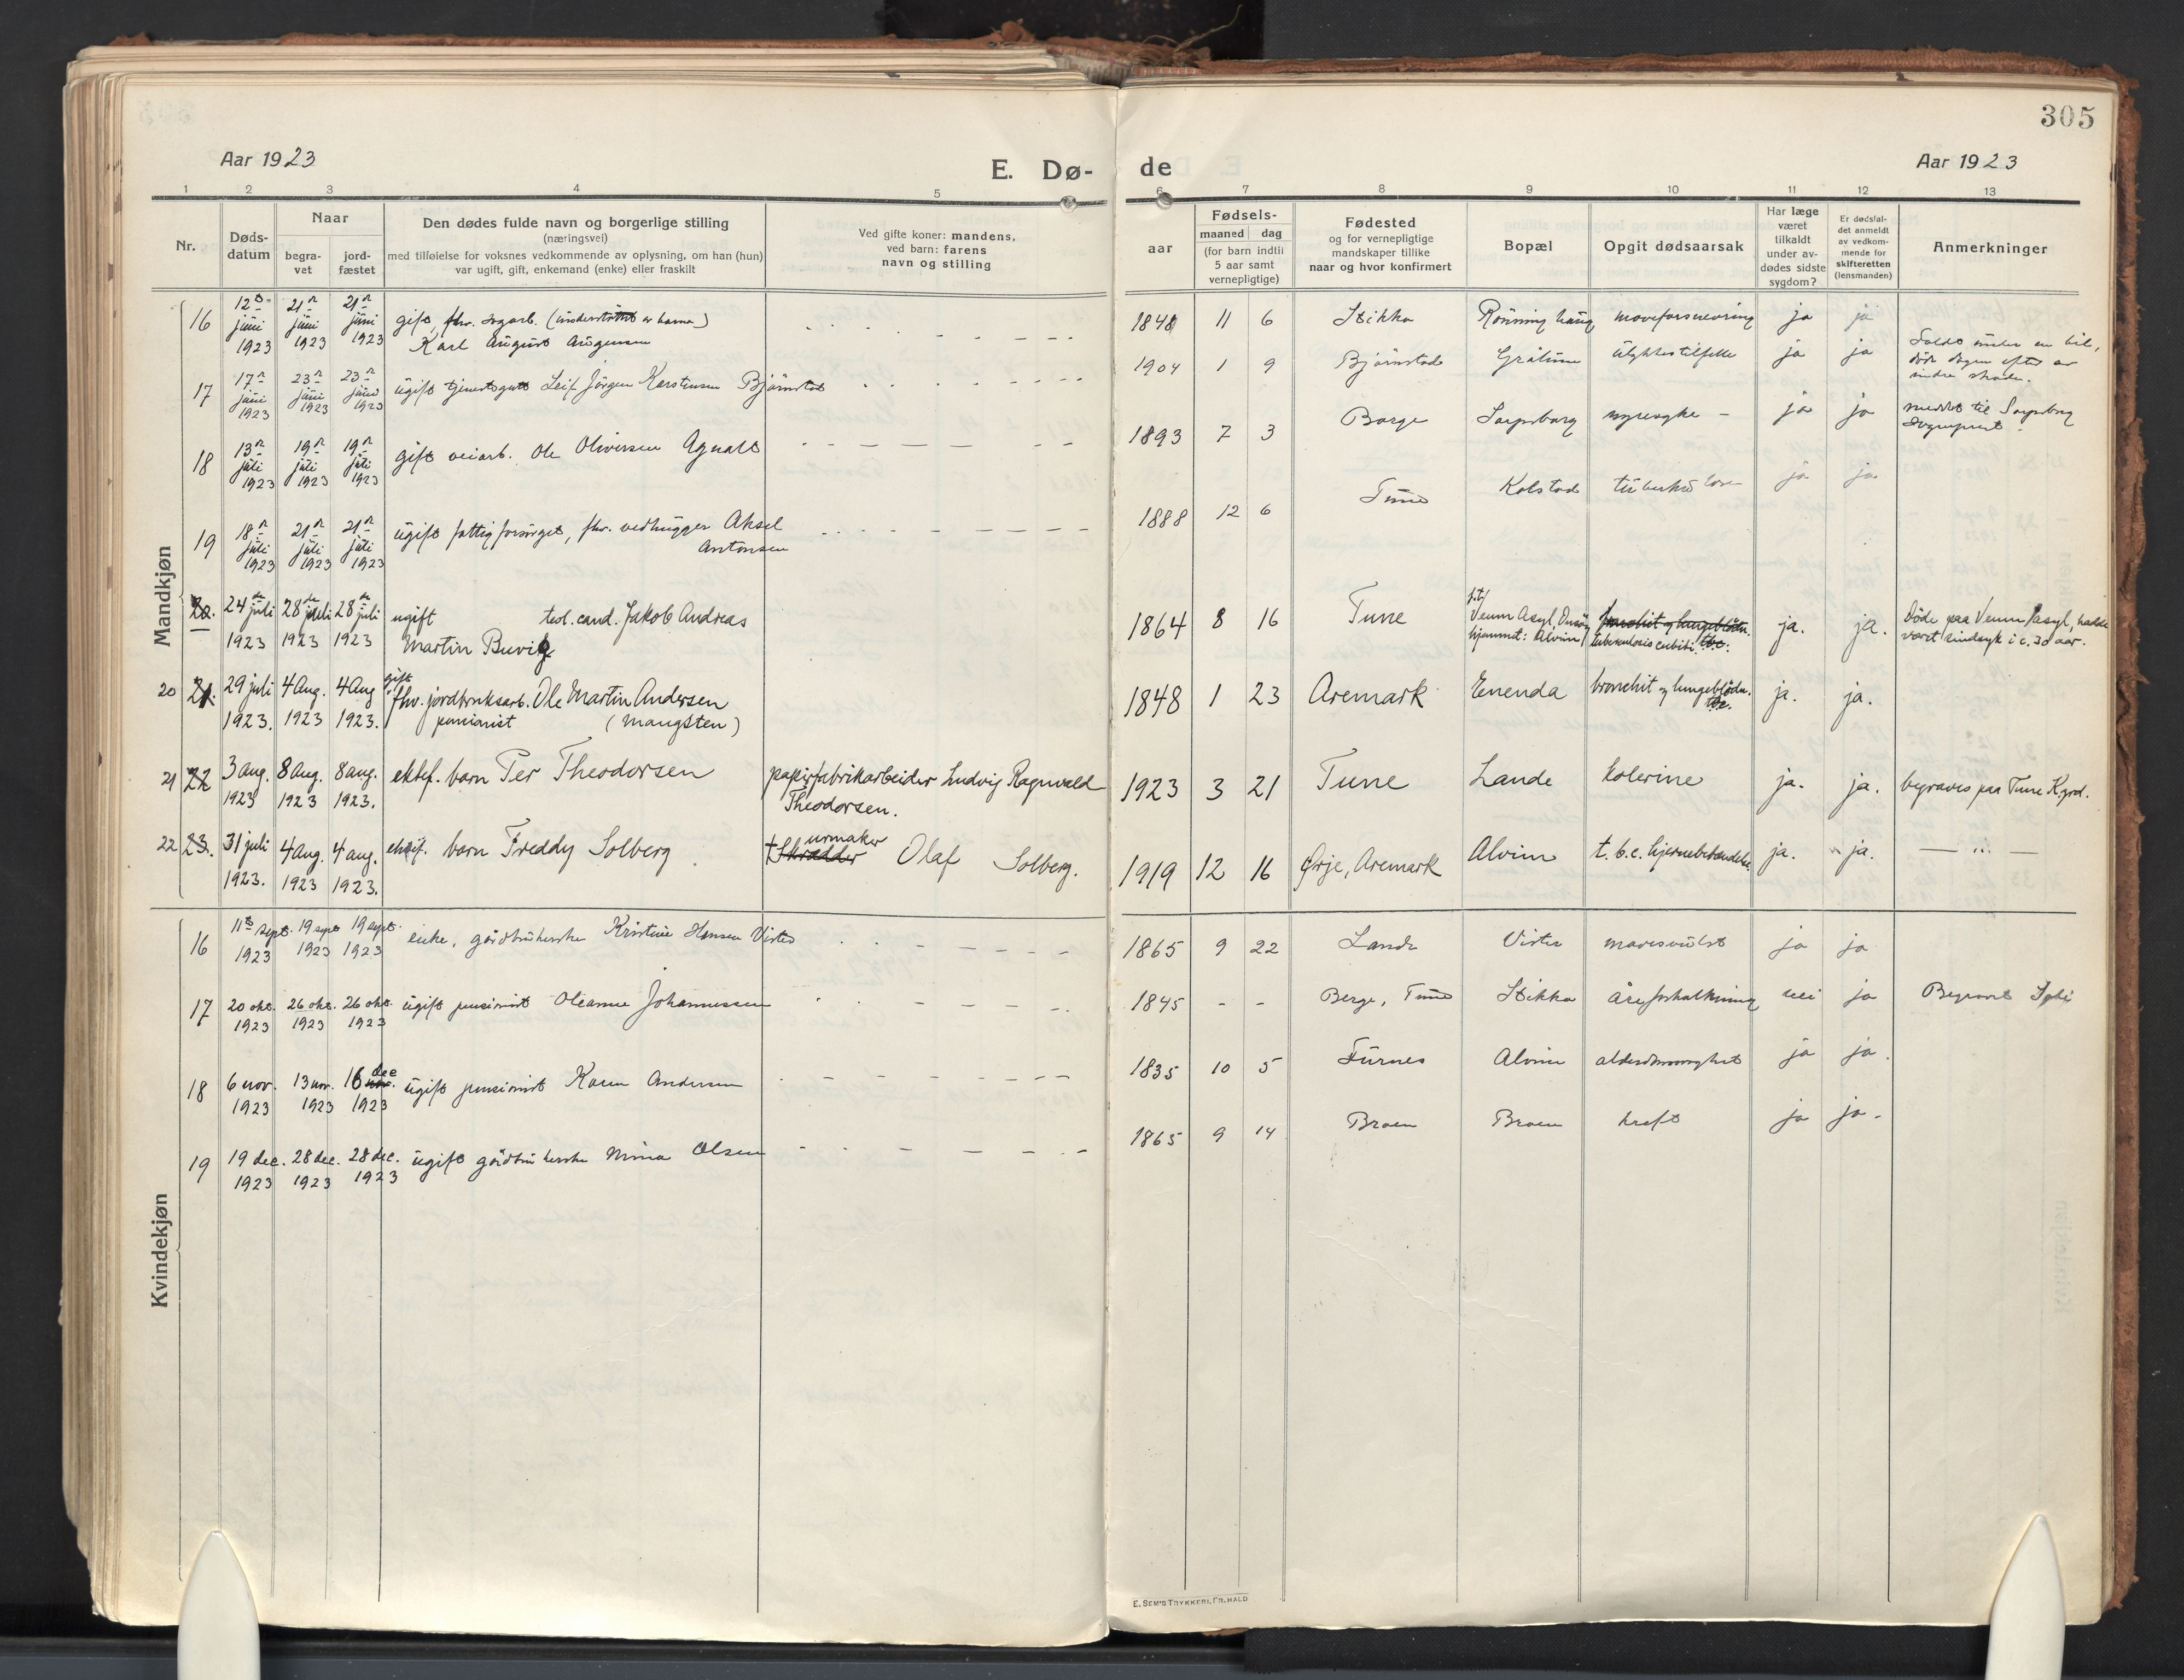 305
Aar 1923
E. Dø-
de
Aar 1923
1 2 3 4 5 6 7 8 9 10 11 12 13
Nr.
Døds-
datum
Naar
begra-
vet
jord-
fæstet
Den dødes fulde navn og borgerlige stilling
(næringsvei)
med tilføielse for voksnes vedkommende av oplysning, om han (hun)
var ugift, gift, enkemand (enke) eller fraskilt
Ved gifte koner: mandens,
ved barn: farens
navn og stilling
aar
Fødsels-
maaned dag
(for barn indtil
5 aar samt
vernepligtige)
Fødested
og for vernepligtige
mandskaper tillike
naar og hvor konfirmert
Bopæl
Opgit dødsaarsak
Har læge
været
tilkaldt
under av-
dødes sidste
sygdom?
Er dødsfal-
det anmeldt
av vedkom-
mende for
skifteretten
(lensmanden)
Anmerkninger
Mandkjøn
16 12te juni 1923 21n juni 1923 21n juni 1923 gift, fhv. (understøttet av barna)
Karl August Augensen
1848 11 6 Stikka ja ja
17 17n juni 1923 23n juni 1923 23n juni 1923 ugift tjenestegutt Leif Jörgen Karstensen Björnstad
1904 1 9 Björnstad Grålum ulykkestilfelle ja ja Faldt under en bil,
döde dagen efter av
indre skader.
18 13n juli 1923 19n juli 1923 19n juli 1923 gift veiarb. Ole Oliversen Agnalt
1893 7 3 Borge Sarpsborg nyresyke - ja ja meddt til Sarpsborg
sogneprest.
19 18n juli 1923 21n juli 1923 21n juli 1923 ugift fattigforsörget, fhv. vedhugger Aksel
Antonsen
1888 12 6 Tune Kolstad tuberkulose ja ja
20. 24de juli 1923 28de juli 1923 28de juli 1923 ugift teol. cand. Jakob Andreas
Martin Buvig
1864 8 16 Tune p.t. Veum Asyl, Onsöy
hjemmet: Alvim bronchit og lungeblödn.
tuberkulosis cubiti. tbc. ja. ja. Döde paa Veum asyl, hadde
varet sindsyk i c. 30 aar.
20 21. 29 juli 1923. 4 Aug. 1923 4 Aug 1923. gift
fhv. jordbruksarb. Ole Martin Andersen
pensionist (Mangsten)
1848 1 23 Aremark Enenda bronchit og lungeblödn. tbc. ja. ja.
21 22 3 aug. 1923 8 Aug. 1923 8 aug. 1923. ektef. barn Per Theodorsen papirfabrikarbeider Ludvig Ragnvald
Theodorsen.
1923 3 21 Tune Lande kolerine ja. ja. begraves paa Tune Kgrd.
22 23. 31 juli 1923. 4 Aug. 1923 4 aug. 1923. ektef. barn Freddy Solberg † Skrædder urmaker Olaf Solberg.
1919 12 16 Ørje, Aremark Alvim t.b.c. hjernebetændelse. ja. ja. — " —
Kvindekjøn
16 11te sept. 1923 19 sept 1923 19 sept. 1923 enke, gårdbrukerske Kristine Hansen Vister
1865 9 22 Lande Vister mavesvulst ja ja
17 20 okt. 1923 26 okt. 1923 26 okt. 1923 ugift pensionist Oleanne Johannessen
1845 - - Berge, Tune Stikka åreforkalkning nei ja Begravet
18 6 nov. 1923 13 nov. 1923 16 nov. dec 1923 ugift pensionist Karen Andersen
1835 10 5 Furnes Alvim ja ja.
19 19 dec. 1923 28 dec. 1923 28 dec. 1923 ugift gårdbrukerske Mina Olsen
1865 9 14 Braen Braen kreft ja ja.
E. SEM'S TRYKKERI, FR.HALD